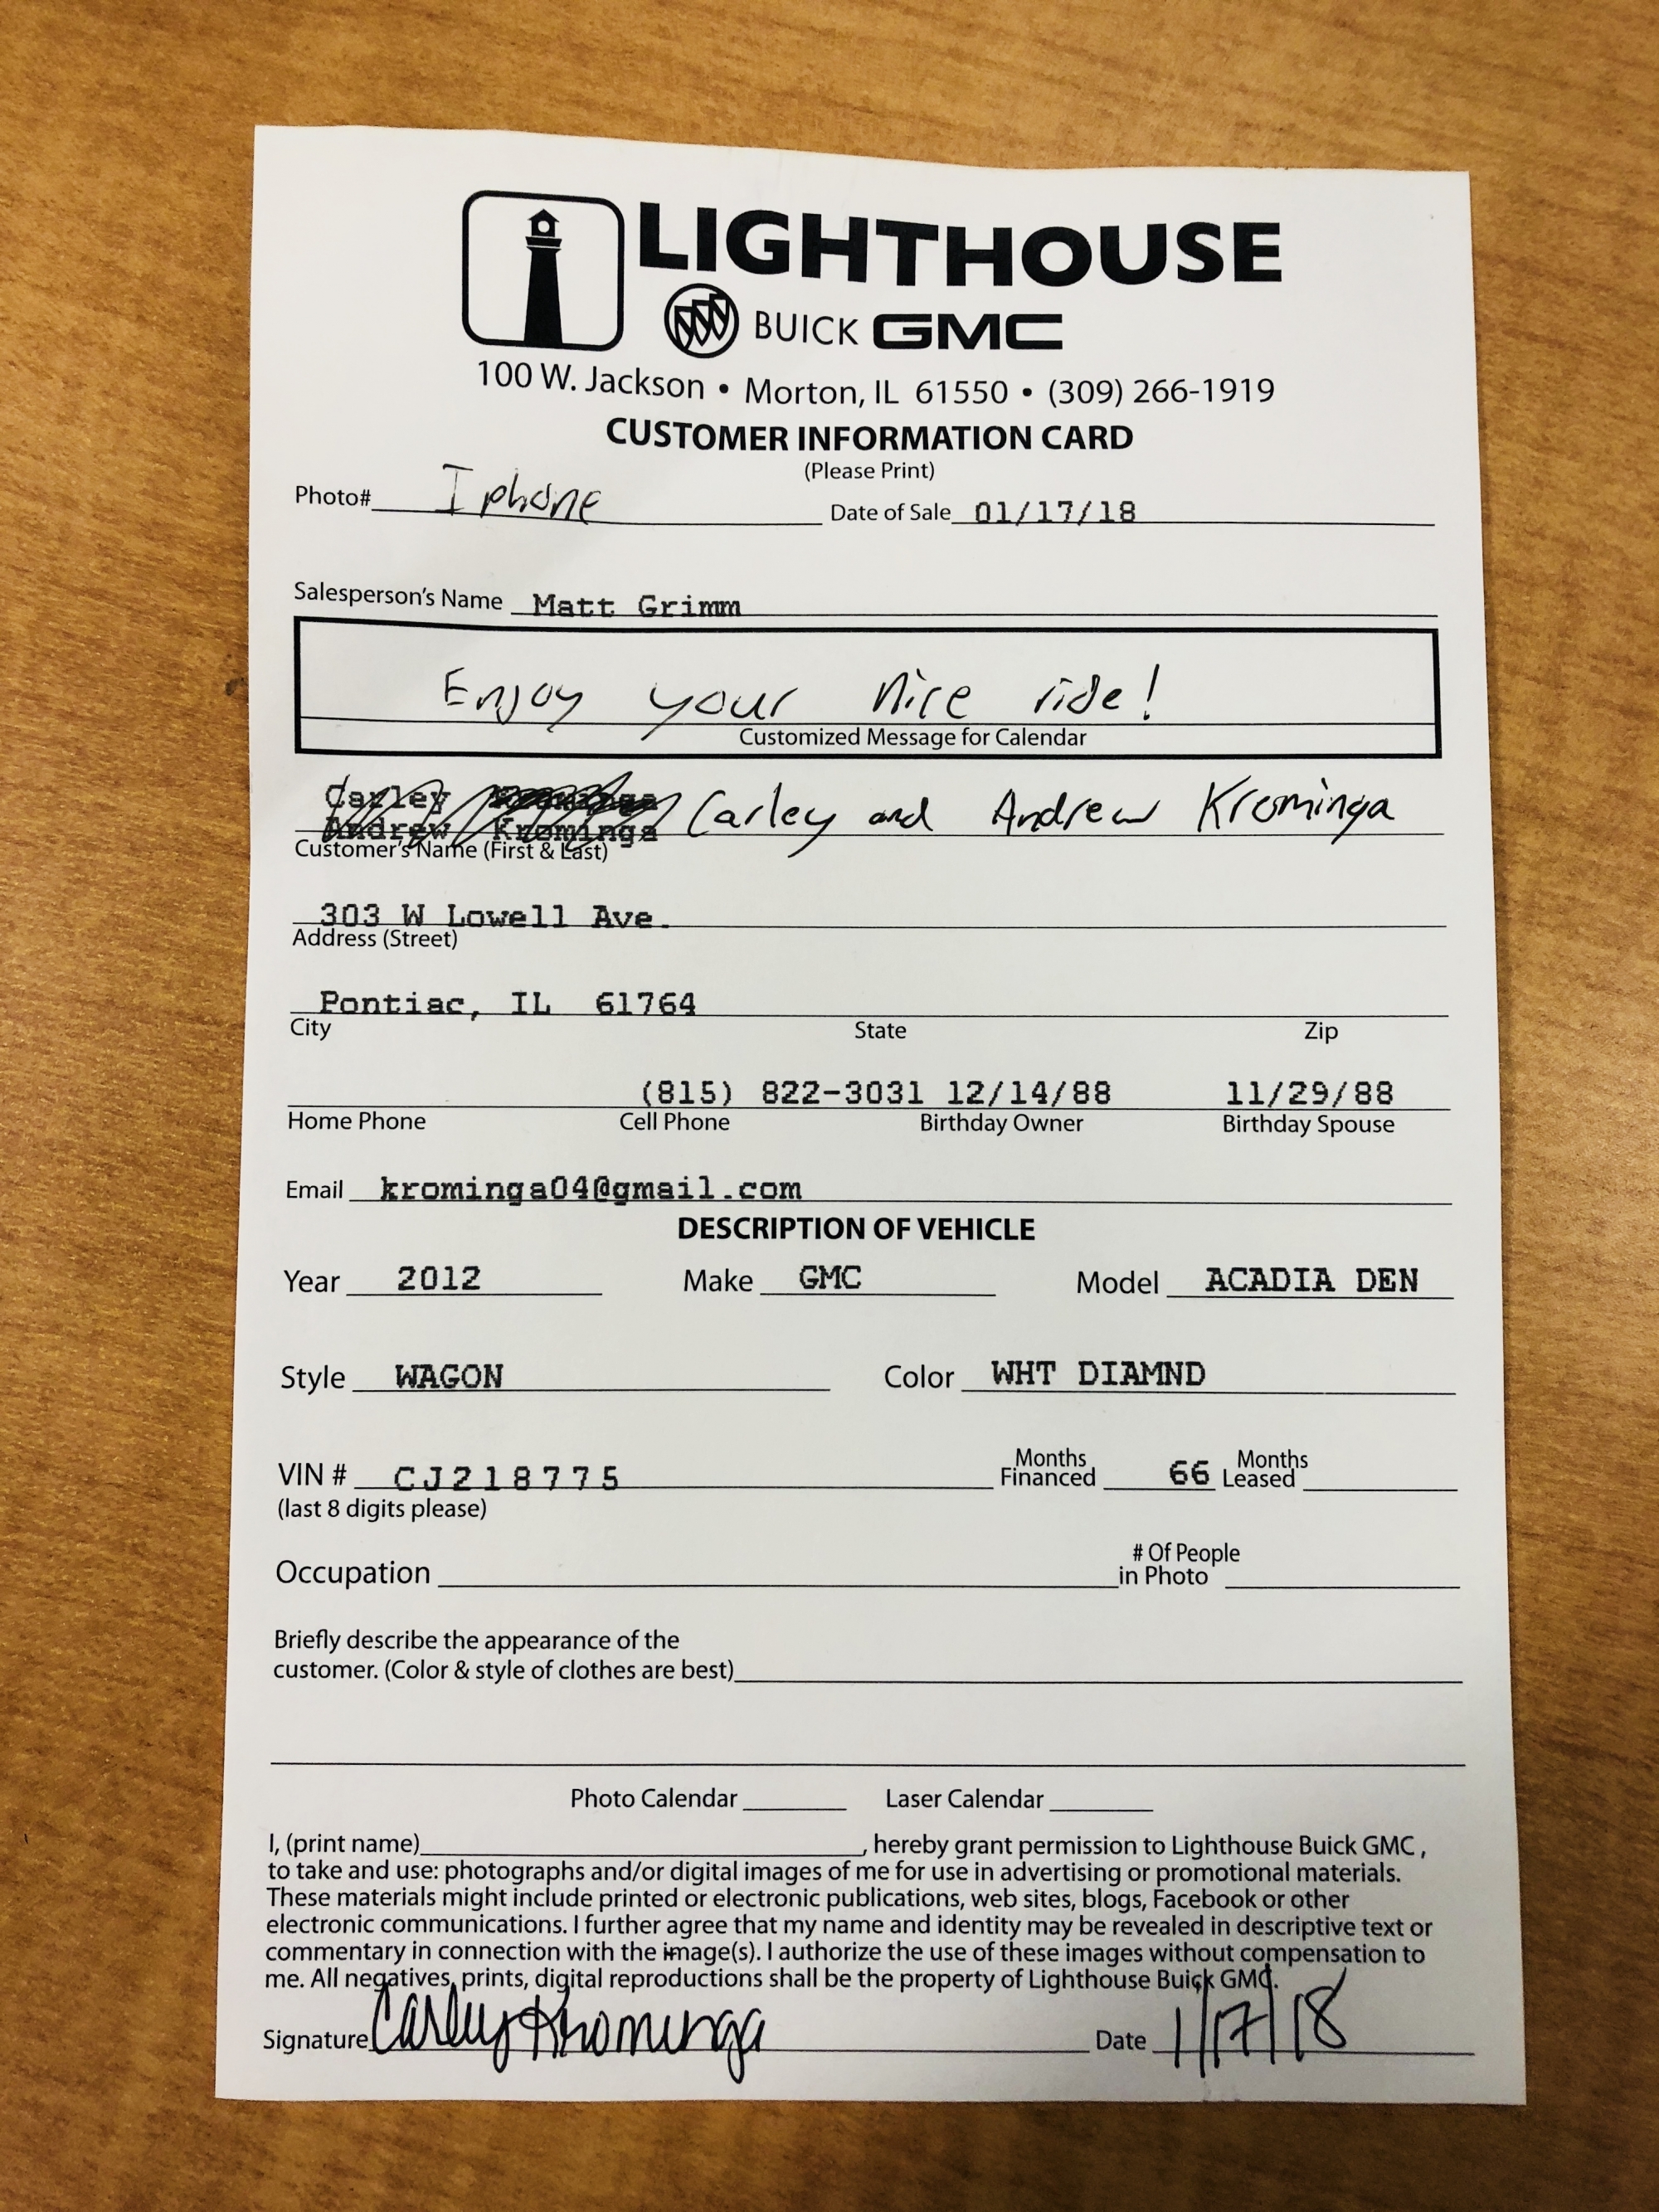 LIGHTHOUSE
BUICK GMC
100 W. Jackson • Morton, IL 61550 • (309) 266-1919
CUSTOMER INFORMATION CARD
(Please Print)
Photo# Iphone Date of Sale 01/17/18
Salesperson's Name Matt Grimm
Enjoy your nice ride!
Customized Message for Calendar
Carley Krominga
Andrew Krominga Carley and Andrew Krominga
Customer's Name (First & Last)
303 W Lowell Ave.
Address (Street)
Pontiac, IL 61764
City State Zip
(815) 822-3031 12/14/88 11/29/88
Home Phone Cell Phone Birthday Owner Birthday Spouse
Email krominga04@gmail.com
DESCRIPTION OF VEHICLE
Year 2012 Make GMC Model ACADIA DEN
Style WAGON Color WHT DIAMND
VIN # CJ218775 Months Financed 66 Months Leased
(last 8 digits please)
Occupation # Of People in Photo
Briefly describe the appearance of the
customer. (Color & style of clothes are best)
Photo Calendar Laser Calendar
I, (print name) , hereby grant permission to Lighthouse Buick GMC ,
to take and use: photographs and/or digital images of me for use in advertising or promotional materials.
These materials might include printed or electronic publications, web sites, blogs, Facebook or other
electronic communications. I further agree that my name and identity may be revealed in descriptive text or
commentary in connection with the image(s). I authorize the use of these images without compensation to
me. All negatives, prints, digital reproductions shall be the property of Lighthouse Buick GMC.
Signature Carley Krominga Date 1/17/18